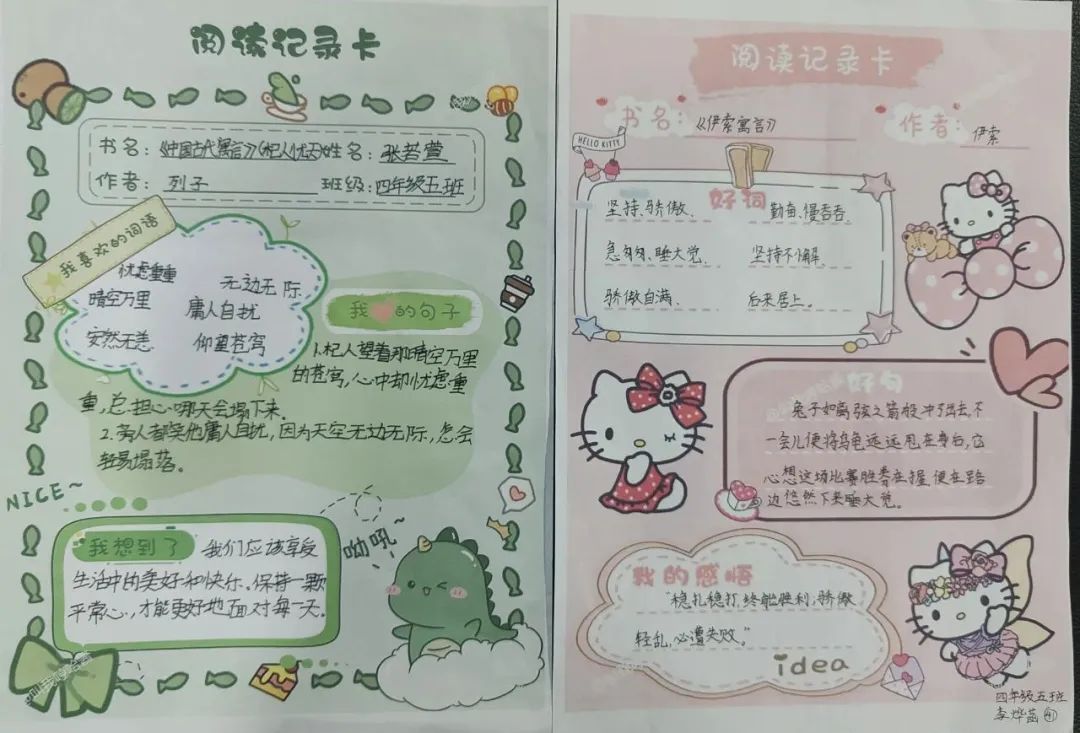 阅读记录卡
书名：《中国古代寓言》《杞人忧天》姓名：张若萱
作者：列子 班级：四年级五班
我喜欢的词语
忧虑重重 无边无际
晴空万里 庸人自扰
安然无恙 仰望苍穹
我的句子
1.杞人望着那晴空万里
的苍穹，心中却忧虑重
重，总担心哪天会塌下来。
2.旁人都笑他庸人自扰，因为天空无边无际，怎会
轻易塌落。
NICE~
我想到了 我们应该享受
生活中的美好和快乐。保持一颗
平常心，才能更好地面对每一天。
呦吼~
阅读记录卡
书名：《伊索寓言》
作者：伊索
HELLO KITTY
好词
坚持、骄傲、 勤奋、慢吞吞、
急匆匆、睡大觉、 坚持不懈、
骄傲自满、 后来居上。
好句
兔子如离弦之箭般冲了出去，不
一会儿便将乌龟远远甩在身后，它
心想这场比赛胜券在握，便在路
边悠然下来睡大觉。
我的感悟
“稳扎稳打，终能胜利；骄傲
轻乱，必遭失败。”
idea
四年级五班
李烨菡 41